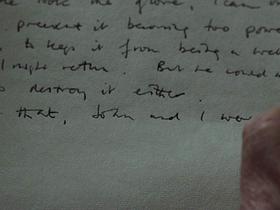 the glove, I can
prevent it becoming too power
to keep it from being a
I might return. But he could
destroy it either.
that, John and I were